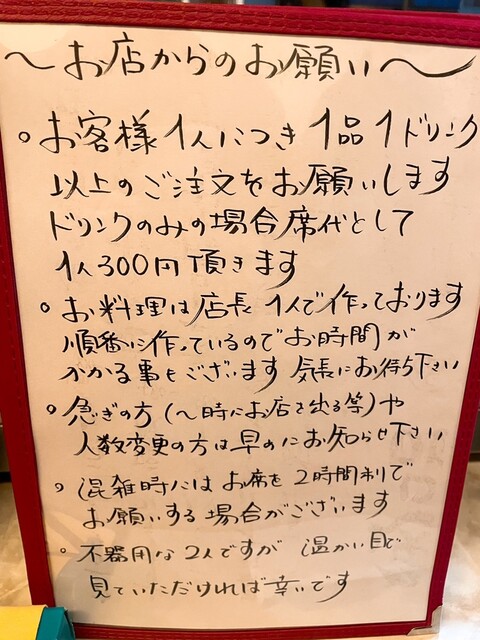 〜お店からのお願い〜
○お客様1人につき1品1ドリンク
以上のご注文をお願いします
ドリンクのみの場合席代として
1人300円頂きます
○お料理は店長1人で作っております
順番に作っているのでお時間が
かかる事もございます 気長にお待ち下さい
○急ぎの方(〜時にお店を出る等)や
人数変更の方は早めにお知らせ下さい
○混雑時にはお席を2時間制で
お願いする場合がございます
○不器用な2人ですが 温かい目で
見ていただければ幸いです